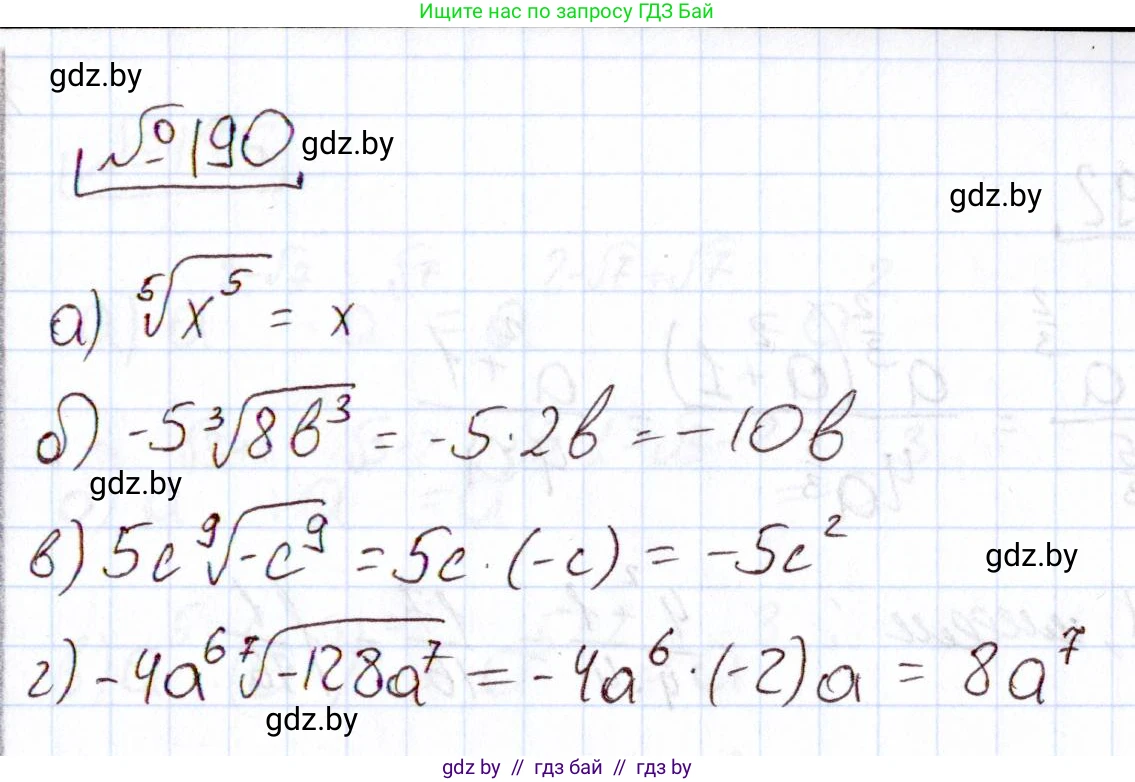 Ищите нас по запросу ГДЗ Бай
gdz.by
№190 gdz.by
gdz.by
а) ⁵√x⁵ = x
б) -5 ³√8в³ = -5·2в = -10в
gdz.by
в) 5c ⁹√-c⁹ = 5c·(-c) = -5c²
gdz.by
г) -4a⁶ ⁷√-128a⁷ = -4a⁶·(-2)a = 8a⁷
gdz.by
gdz by // гдз бай // гдз by